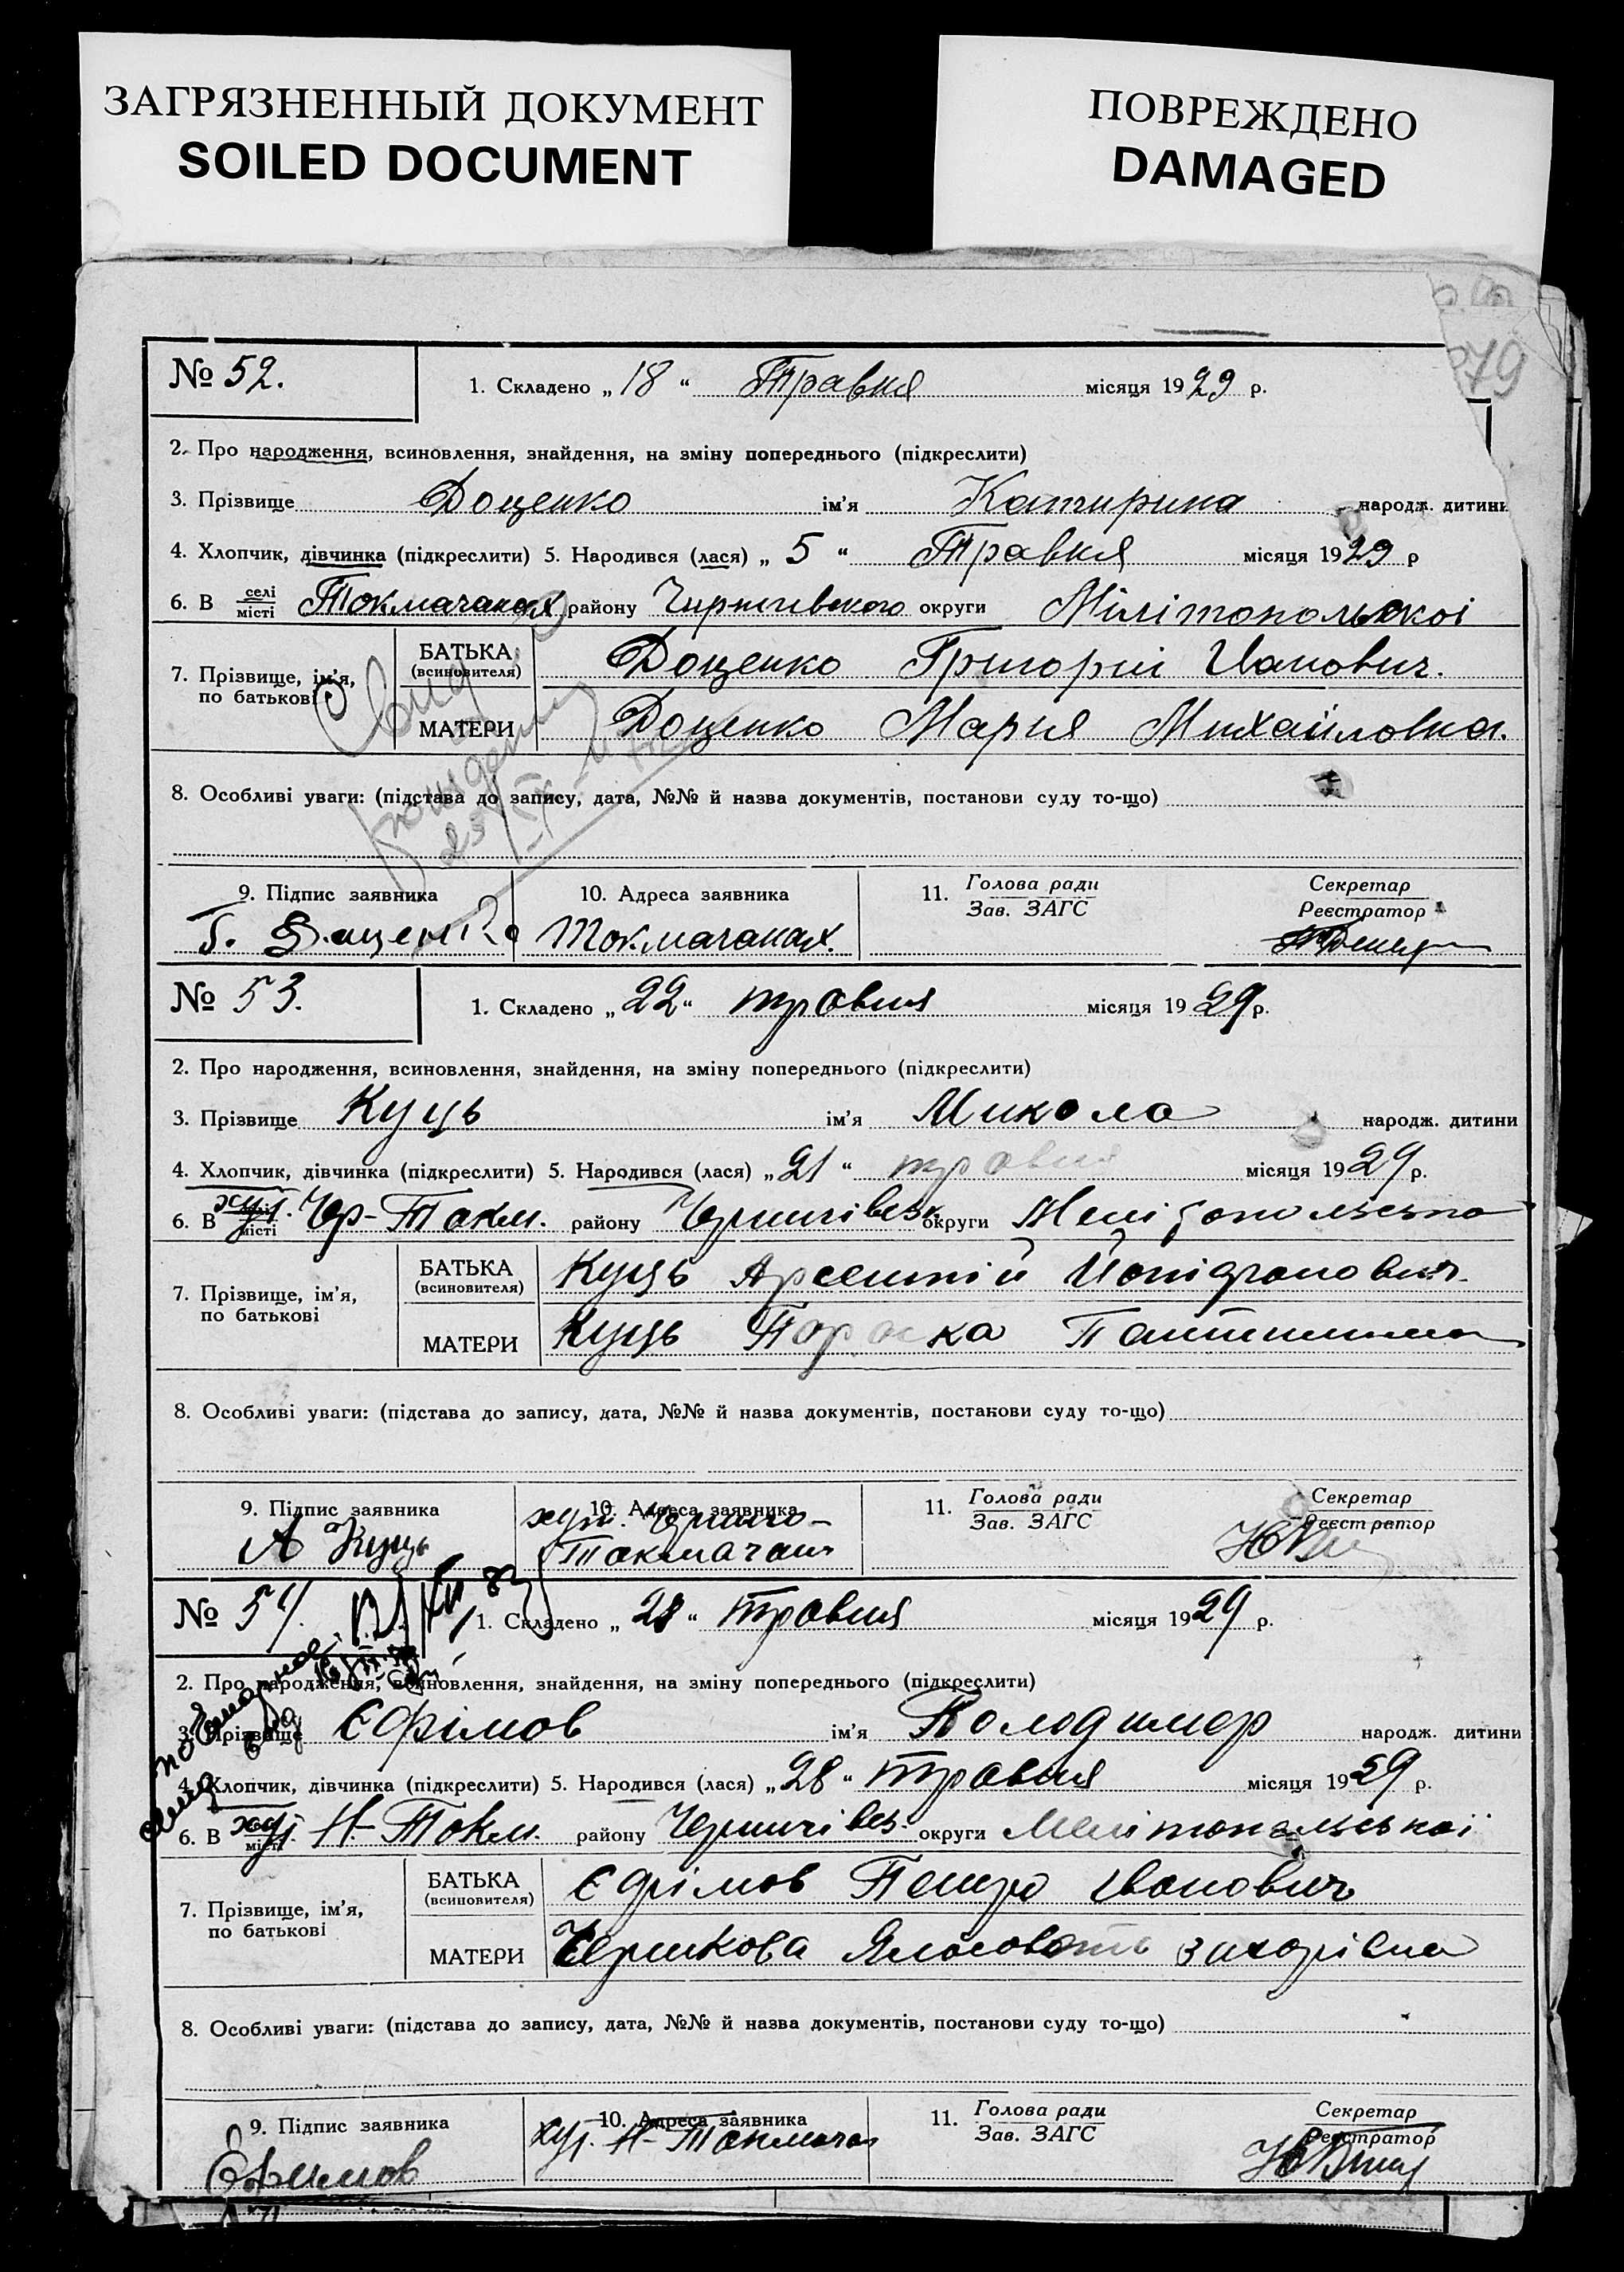 ЗАГРЯЗНЕННЫЙ ДОКУМЕНТ
SOILED DOCUMENT
ПОВРЕЖДЕНО
DAMAGED
79
№ 52. 1. Складено „ 18 “ Травня місяця 1929 р.
2. Про народження, всиновлення, знайдення, на зміну попереднього (підкреслити)
3. Прізвище Доценко ім’я Катирина народж. дитини
4. Хлопчик, дівчинка (підкреслити) 5. Народився (лася) „ 5 “ Травня місяця 1929 р
6. В селі місті Токмачанах району Чирнигівского округи Мілітопольскоі
7. Прізвище, ім’я, по батькові
БАТЬКА (всиновителя) Доценко Григорій Иванович.
МАТЕРИ Доценко Мария Михайловна.
8. Особливі уваги: (підстава до запису, дата, №№ й назва документів, постанови суду то-що)
9. Підпис заявника 10. Адреса заявника 11. Голова ради Зав. ЗАГС Секретар Реєстратор
Г. Даценко Токмачанах.
№ 53. 1. Складено „ 22 “ травня місяця 1929 р.
2. Про народження, всиновлення, знайдення, на зміну попереднього (підкреслити)
3. Прізвище Куць ім’я Микола народж. дитини
4. Хлопчик, дівчинка (підкреслити) 5. Народився (лася) „ 21 “ травня місяця 1929 р.
6. В хут. місті Чер-Токм. району Чернигівськ округи
7. Прізвище, ім’я, по батькові
БАТЬКА (всиновителя) Куць Арсентій
МАТЕРИ Куць Параска
8. Особливі уваги: (підстава до запису, дата, №№ й назва документів, постанови суду то-що)
9. Підпис заявника 10. Адреса заявника 11. Голова ради Зав. ЗАГС Секретар Реєстратор
А Куць хут. Черниго-
Токмачан
№ 54. 1. Складено „ 28 “ травня місяця 1929 р.
2. Про народження, всиновлення, знайдення, на зміну попереднього (підкреслити)
3. Прізвище Єфімов ім’я Володимер народж. дитини
4. Хлопчик, дівчинка (підкреслити) 5. Народився (лася) „ 28 “ травня місяця 1929 р.
6. В хут. місті Н-Токм. району Чернигівськ. округи Мелітопольської
7. Прізвище, ім’я, по батькові
БАТЬКА (всиновителя) Єфімов Петро Іванович
МАТЕРИ Захарівна
8. Особливі уваги: (підстава до запису, дата, №№ й назва документів, постанови суду то-що)
9. Підпис заявника 10. Адреса заявника 11. Голова ради Зав. ЗАГС Секретар Реєстратор
Ефимов хут. Н-Токмачан